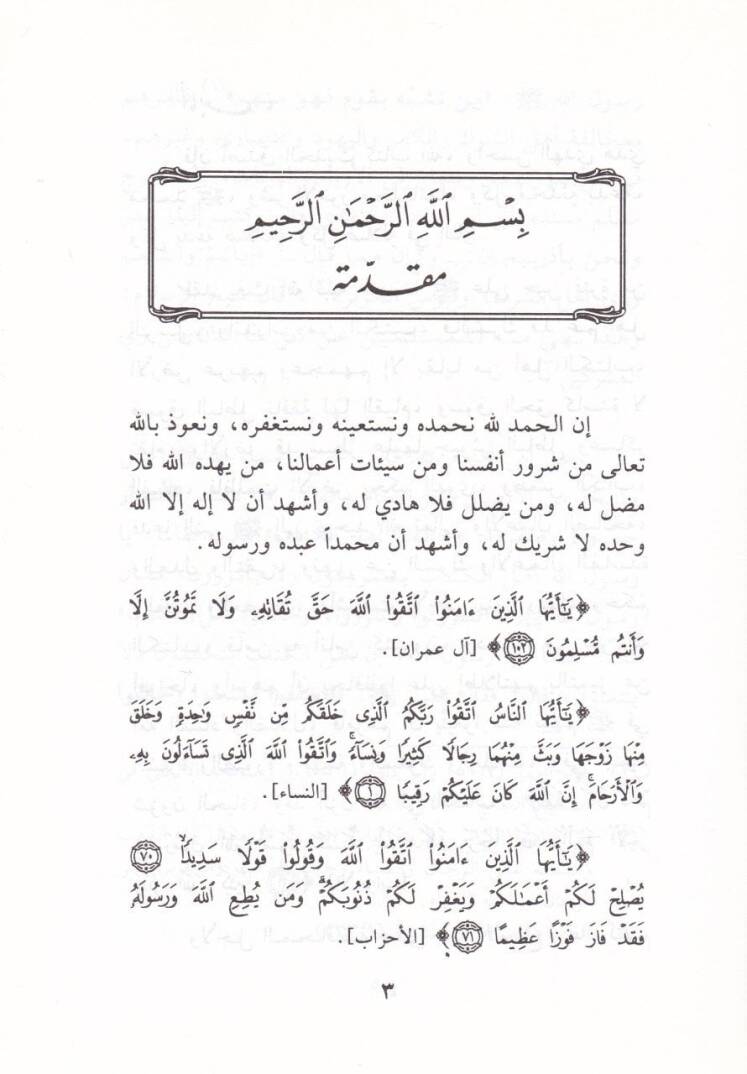 بِسْمِ اللَّهِ الرَّحْمَٰنِ الرَّحِيمِ
مقدّمة
إن الحمد لله نحمده ونستعينه ونستغفره، ونعوذ بالله
تعالى من شرور أنفسنا ومن سيئات أعمالنا، من يهده الله فلا
مضل له، ومن يضلل فلا هادي له، وأشهد أن لا إله إلا الله
وحده لا شريك له، وأشهد أن محمداً عبده ورسوله.
﴿يَٰٓأَيُّهَا الَّذِينَ ءَامَنُوا۟ اتَّقُوا۟ اللَّهَ حَقَّ تُقَاتِهِۦ وَلَا تَمُوتُنَّ إِلَّا
وَأَنتُم مُّسْلِمُونَ ١٠٢﴾ [آل عمران].
﴿يَٰٓأَيُّهَا النَّاسُ اتَّقُوا۟ رَبَّكُمُ الَّذِى خَلَقَكُم مِّن نَّفْسٍ وَٰحِدَةٍ وَخَلَقَ
مِنْهَا زَوْجَهَا وَبَثَّ مِنْهُمَا رِجَالًا كَثِيرًا وَنِسَآءً ۚ وَاتَّقُوا۟ اللَّهَ الَّذِى تَسَآءَلُونَ بِهِۦ
وَالْأَرْحَامَ ۚ إِنَّ اللَّهَ كَانَ عَلَيْكُمْ رَقِيبًا ١﴾ [النساء].
﴿يَٰٓأَيُّهَا الَّذِينَ ءَامَنُوا۟ اتَّقُوا۟ اللَّهَ وَقُولُوا۟ قَوْلًا سَدِيدًا ٧٠
يُصْلِحْ لَكُمْ أَعْمَٰلَكُمْ وَيَغْفِرْ لَكُمْ ذُنُوبَكُمْ ۗ وَمَن يُطِعِ اللَّهَ وَرَسُولَهُۥ
فَقَدْ فَازَ فَوْزًا عَظِيمًا ٧١﴾ [الأحزاب].
٣